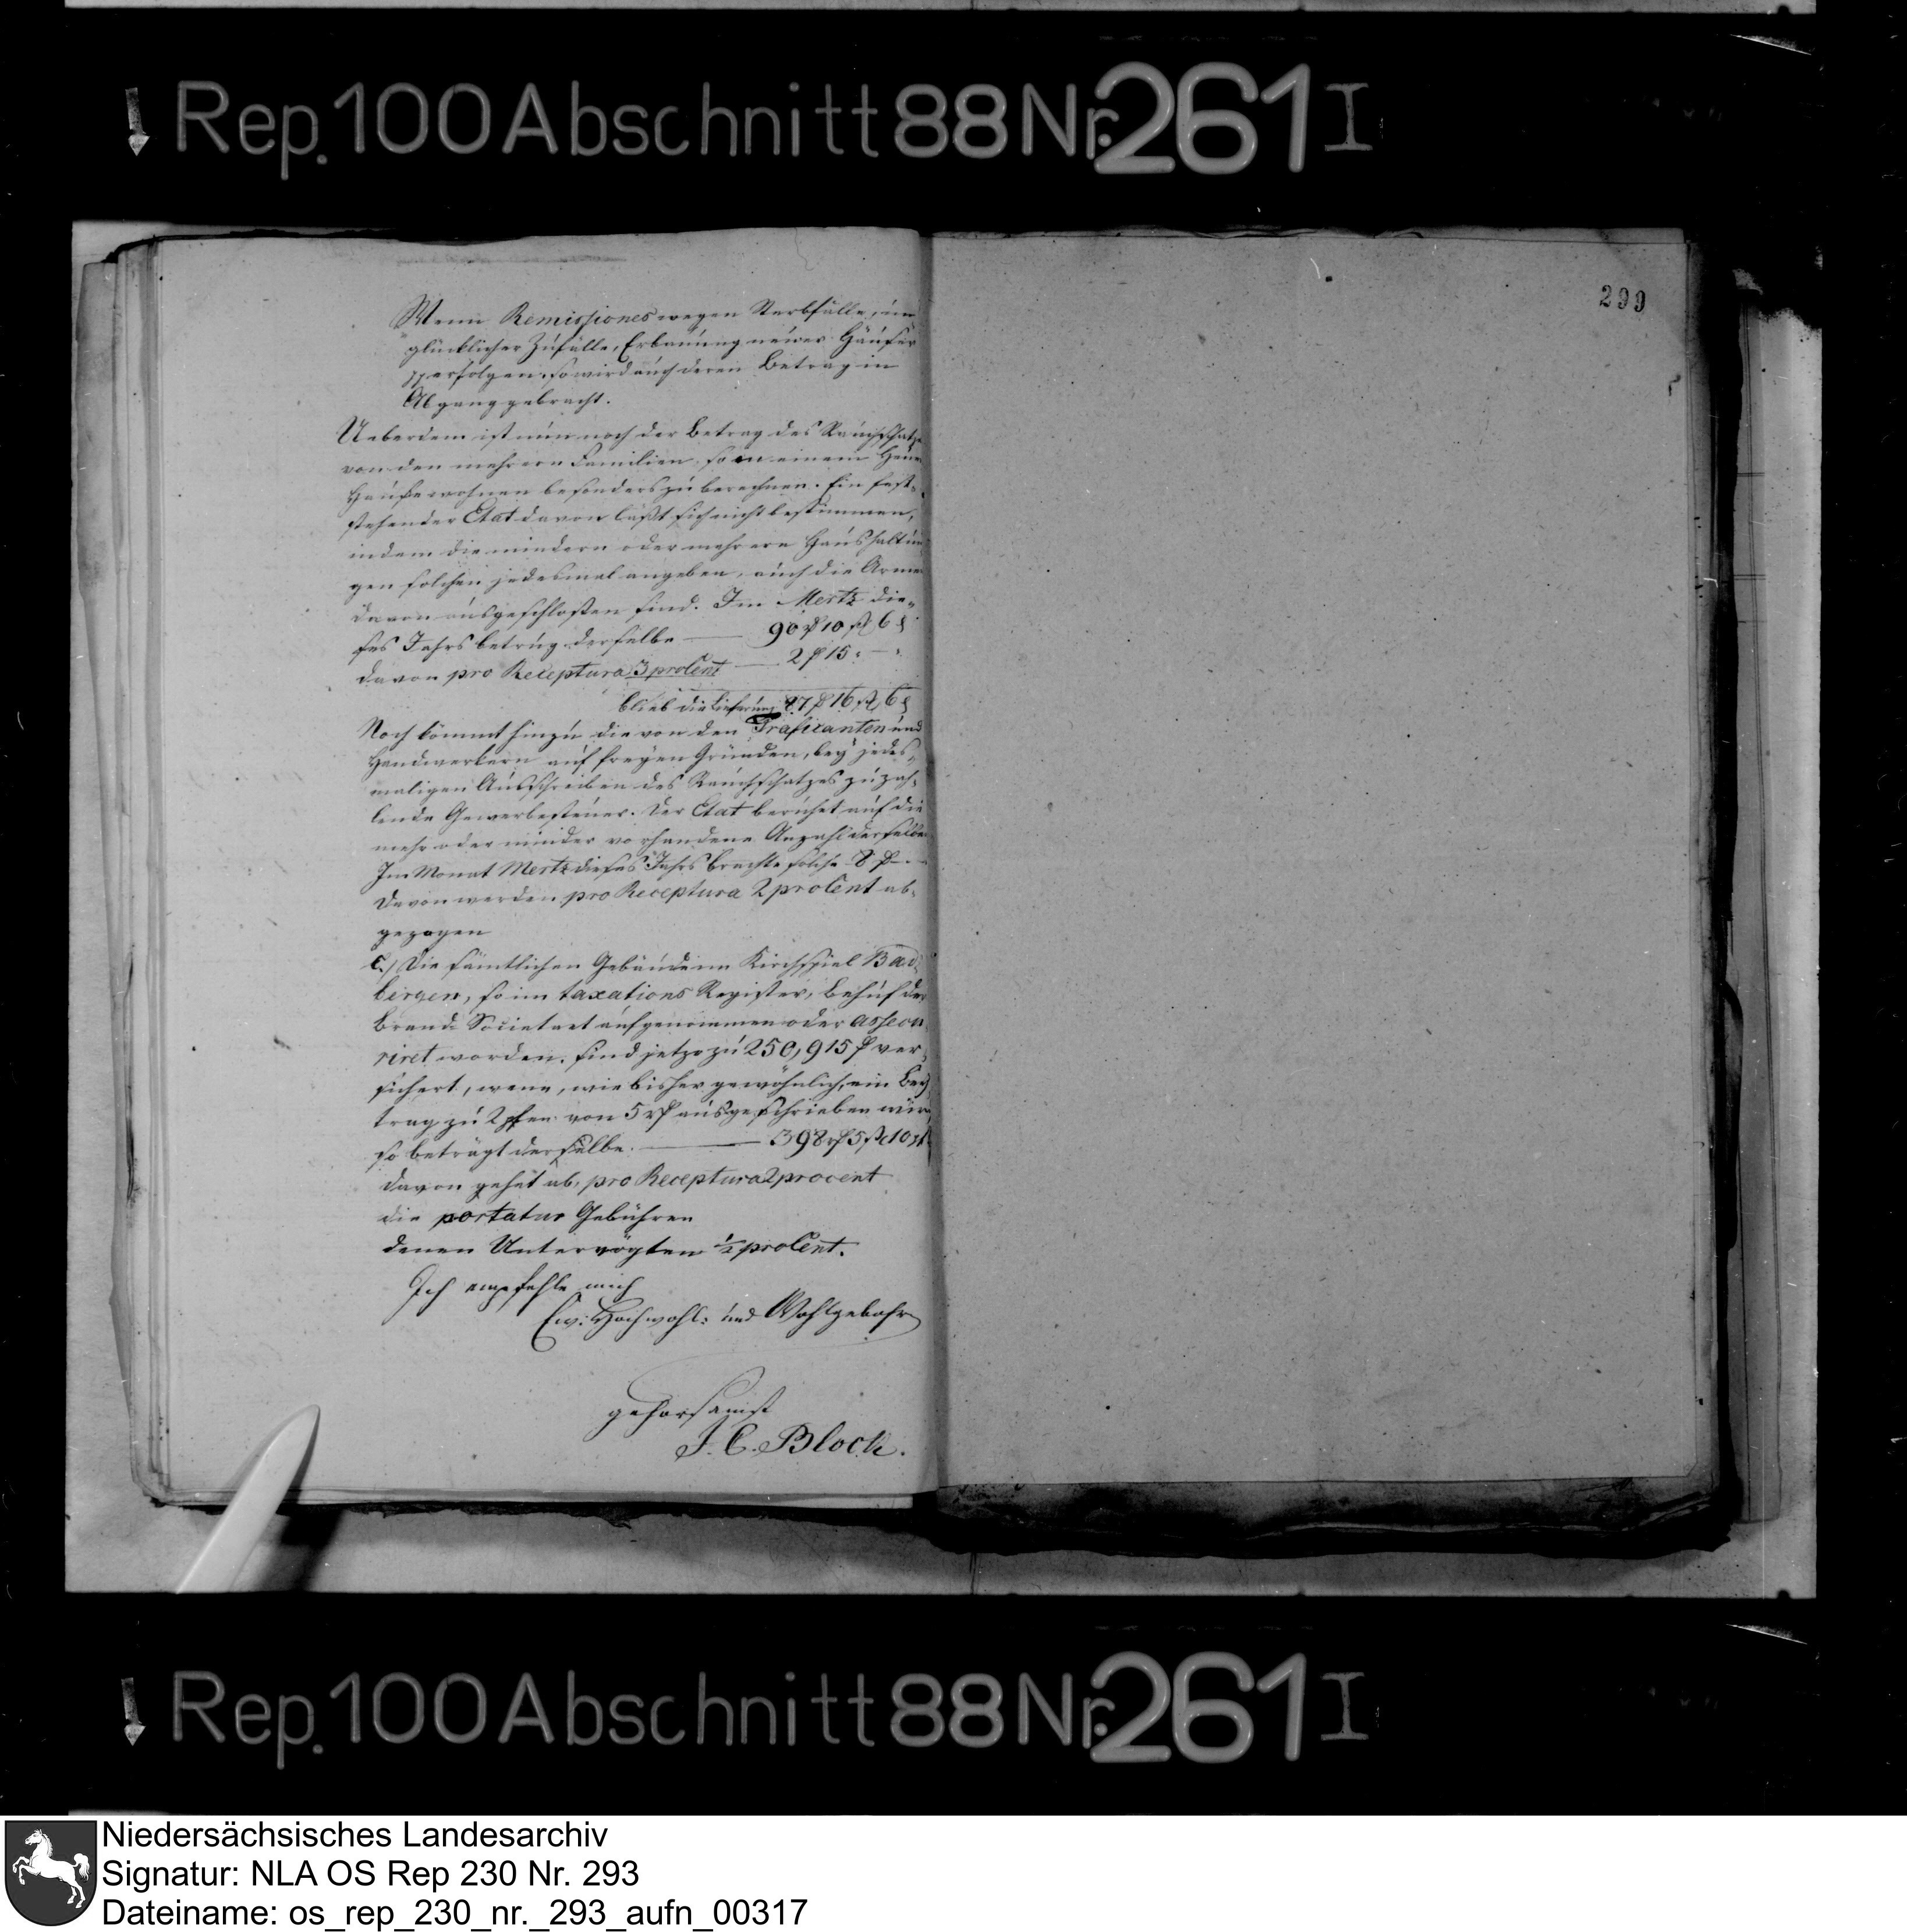 Rep. 100 Abschnitt 88 Nr. 261 I
299
Wenn Remissiones wegen Sterbfälle, un
glücklicher Zufälle, Erbauung neuer Häuser
pp erfolgen, so wird auch deren Betrag in
Abgang gebracht.
Ueberdem ist nun noch der Betrag des Rauchschatzes
von den mehreren Familien so in einem Heuer
Hause wohnen besonders zu berechnen. Ein fest-
stehender Etat davon läßt sich nicht bestimmen,
indem die mindern oder mehrern Haushaltun
gen solchen jedesmal angeben, auch die Armen
davon ausgeschloßen sind. Im Mertz die-
ses Jahrs betrug derselbe — 90 rthlr 10 ßl 6 d
davon pro Receptura 3 proCent — 2 rthlr 15 : — :
blieb die Lieferung 87 rthlr 16 ßl 6 d
Noch kömmt hinzu die von den Trafixanten und
Handwerkern auf freyen Gründen, bey jedes-
maligen Ausschreiben des Rauchschatzes zu zah-
lende Gewerbesteuer. Der Etat beruhet auf die
mehr oder minder vorhandene Anzahl derselben
Im Monat Mertz dieses Jahrs brachte solche 8 rthlr — —
Davon werden pro Receptura 2 proCent ab-
gezogen
C.) Die sämtlichen Gebäude im Kirchspiel Bad-
bergen, so im taxations Register, behuf der
Brand Societaet aufgenommen oder assecu
riret worden, sind jetzo zu 250,915 rthlr ver-
sichert, wenn, wie bisher gewöhnlich, ein Bey
trag zu 2 pfen. von 5 rthlr ausgeschrieben wird
so beträgt derselbe. — 398 rthlr 5 ßl 10 d
davon gehet ab, pro Receptura 2 procent
die portatur Gebühren
denen Untervögten ½ proCent.
Ich empfehle mich
Ew: Hochwohl: und Wohlgebohrn
gehorsamst
J. C. Block.
Rep. 100 Abschnitt 88 Nr. 261 I
Niedersächsisches Landesarchiv
Signatur: NLA OS Rep 230 Nr. 293
Dateiname: os_rep_230_nr._293_aufn_00317